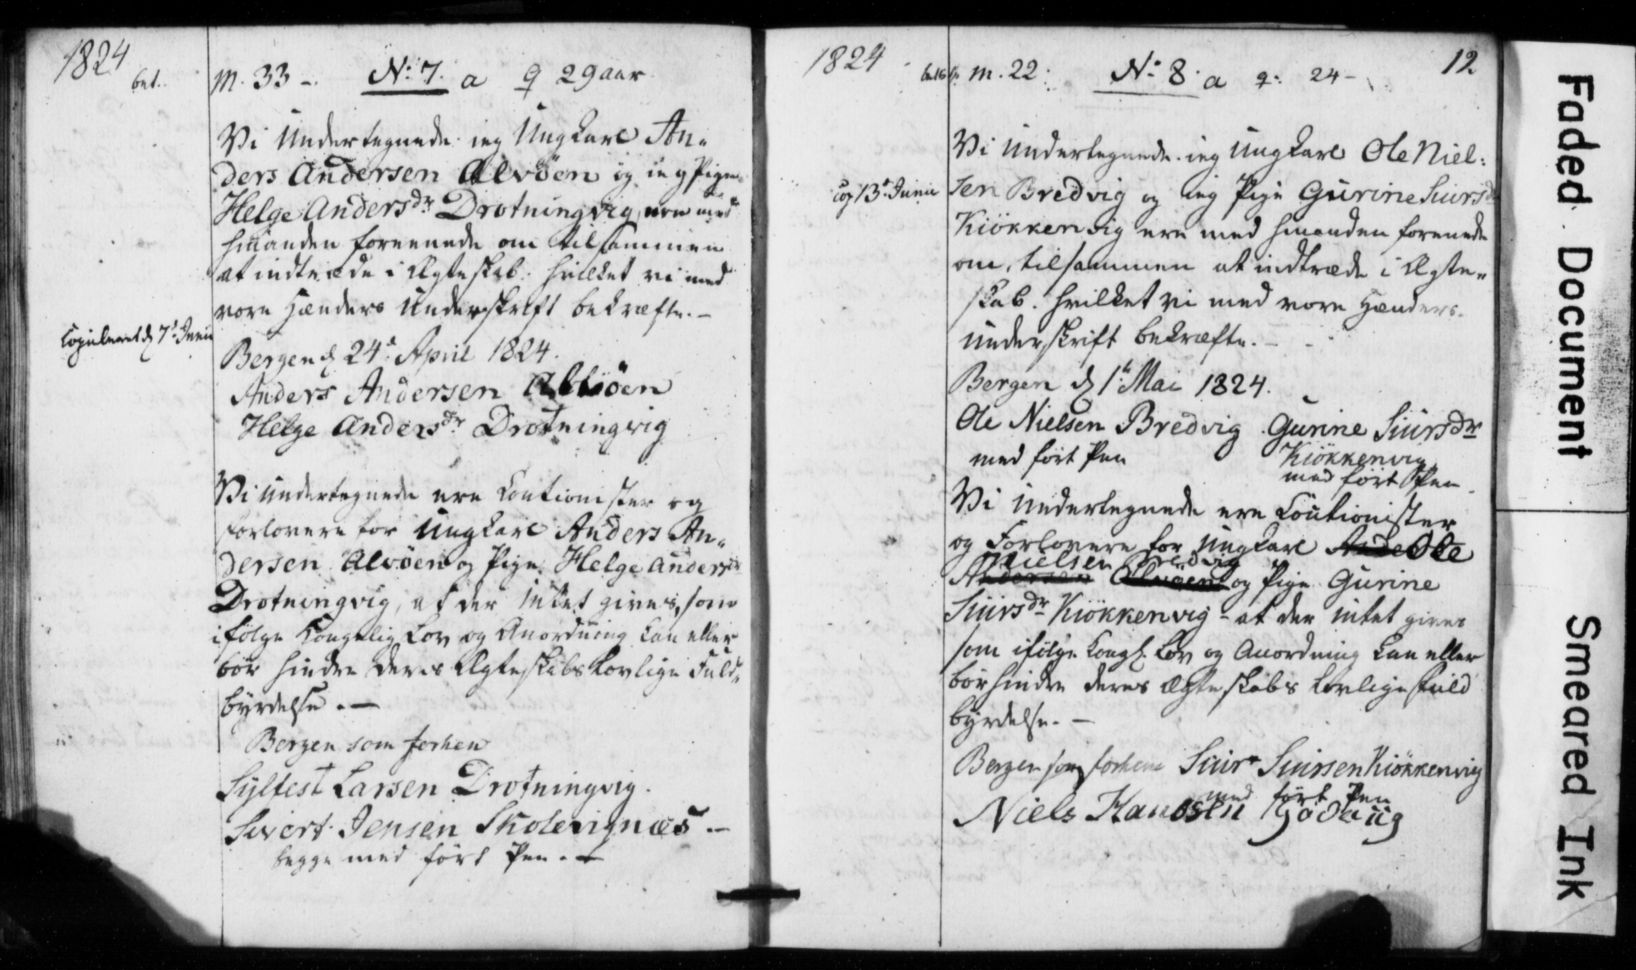 1824
bet.
M. 33 -. No: 7. a q 29 aar
Vi Undertegnede. ieg Ungkarl An-
ders Andersen Alvöen og ieg Pigen
Helge Andersdr Drotningvig, ere med
hinanden foreenede om tilsammen
at indtræde i Ægteskab. hvilket vi med
vore Hænders Underskrift bekræfte. -
Copuleret d 7d Junii
Bergen d 24d April 1824.
Anders Andersen Alvöen
Helge Andersdr Drotningvig
Vi undertegnede ere Coutionister og
Forlovere for Ungkarl Anders An-
dersen Alvöen og Pige Helge Andersdr
Drotningvig, at der intet gives, som
ifölge Kongelig Lov og Anordning kan eller
bör hindre deres Ægteskabs Lovlige Fuld-
byrdelse. -
Bergen som forhen
Sylfest Larsen Drotningvig.
Sivert Jensen Skolevignæs. -
begge med fört Pen. -
1824
12
m. 22: No: 8. a q: 24 -
Vi Undertegnede. ieg Ungkarl Ole Niel-
sen Bredvig og ieg Pige Gurine Siursdr
Cop 13d Junii
Kiökkenvig ere med hinanden forenede
om, tilsammen at indtræde i Ægte-
skab. hvilket vi med vore Hænders
underskrift bekræfte. -
Bergen d 1te Mai 1824.
Ole Nielsen Bredvig Gurine Siursdr
med fört Pen Kiökkenvig
med fört Pen
Vi Undertegnede ere Coutionister
og Forlovere for Ungkarl Ole
Nielsen Bredvig
Andersen Alvöen og Pige Gurine
Siursdr Kiökkenvig - at der intet gives
som ifölge Kongl. Lov og Anordning kan eller
bör hindre deres Ægteskabs Lovlige Fuld
byrdelse. -
Bergen som forhen Siur Siursen Kiökkenvig
med fört Pen
Niels Hansen
Faded Document
Smeared Ink